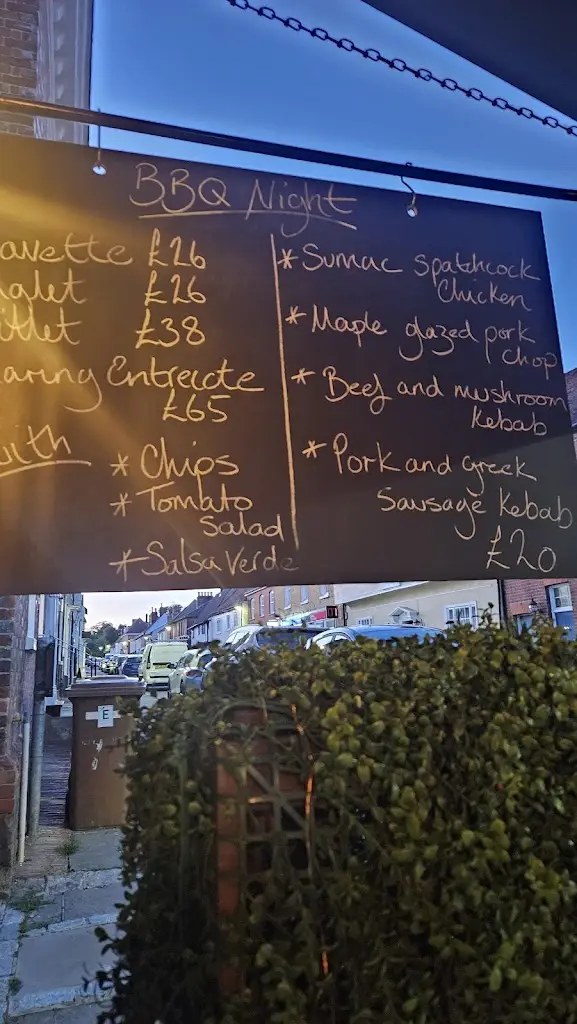 BBQ Night
avette £26
glet £26
illet £38
aring Entrecote
£65
with
* Chips
* Tomato
Salad
* Salsa Verde
* Sumac spatchcock
Chicken
* Maple glazed pork
chop
* Beef and mushroom
Kebab
* Pork and Greek
Sausage Kebab
£20
E